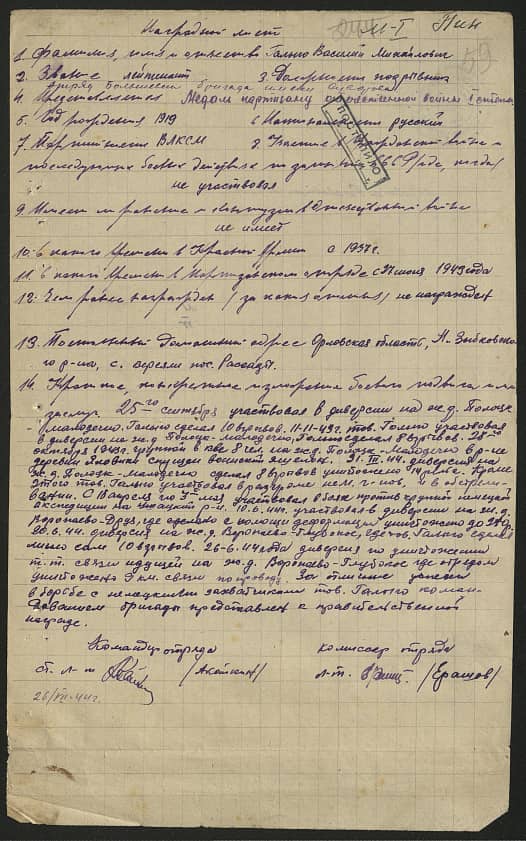 Наградной лист
1. Фамилия, имя и отчество Галько Василий Михайлович
2. Звание лейтенант 3. Должность подрывник
отряд Большевик бригада имени Суворова
4. Представляется Медаль партизану отечественной войны I степени
5. Год рождения 1919 6 Национальность русский
7. Партийность ВЛКСМ 8. Участие в гражданской войне и
последующих боевых действиях по защите СССР (где, когда)
не участвовал
9. Имеет ли ранения и контузии в Отечественной войне
не имеет
10. с какого времени в Красной Армии с 1937г.
11 с какого времени в партизанском отряде с 27 июня 1943 года
12. Чем ранее награжден (за какие отличия) не награжден
13. Постоянный домашний адрес Орловская область, Н. Зыбковско-
го р-на, с. пос. Рассады.
14. Краткое, конкретное изложение боевого подвига или
заслуг. 25го сентября участвовал в диверсии на ж.д. Полоцк
-Молодечно. Галько сделал 10 взрывов. 11-11-43г. тов. Галько участвовал
в диверсии на ж.д. Полоцк-Молодечно, Галько сделал 8 взрывов. 28го
октября 1943г. группой в 8 чел. на ж.д. Полоцк-Молодечно в р-не
деревни спущен воинский эшелон. 31. III. 44г. диверсия на
ж.д. Полоцк-Молодечно сделал 8 взрывов уничтожено рельс. Кроме
этого тов. Галько участвовал в разгроме нем. г-нов. и в обстрели-
вании. С 18 апреля по 5 мая участвовал в боях против крупной немецкой
экспедиции на р-н. 10.6.44г. участвовал в диверсии на ж.д.
Воропаево-Друя, где сделано с помощи деформации уничтожено до
20.6.44г. диверсия на ж.д. Воропаево-Глубокое, где тов. Галько сделал
лично сам 10 взрывов. 26-6-44 года диверсия по уничтожении
т.т. связи идущей на ж.д. Воропаево-Глубокое где отрядом
уничтожено 9 км. связи по проводу. За отличие успехи
в борьбе с немецкими захватчиками тов. Галько коман-
дованием бригады представлен к правительственной
награде.
Командир отряда комиссар отряда
ст. л-т л-т. (Ершов)
26/VII-44г.